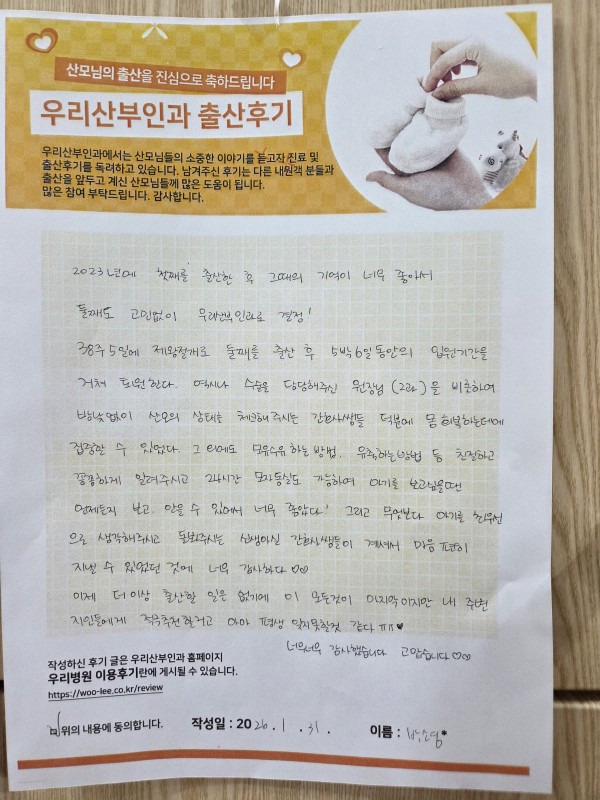 산모님의 출산을 진심으로 축하드립니다
우리산부인과 출산후기
우리산부인과에서는 산모님들의 소중한 이야기를 듣고자 진료 및
출산후기를 독려하고 있습니다. 남겨주신 후기는 다른 내원객 분들과
출산을 앞두고 계신 산모님들께 많은 도움이 됩니다.
많은 참여 부탁드립니다. 감사합니다.
2023년에 첫째를 출산한 후 그때의 기억이 너무 좋아서
둘째도 고민없이 우리산부인과로 결정!
38주 5일에 제왕절개로 둘째를 출산 후 5박6일동안의 입원기간을
거쳐 퇴원한다. 역시나 수술을 담당해주신 원장님(2과)을 비롯하여
밤낮없이 산모의 상태를 체크해주시는 간호사쌤들 덕분에 몸 회복하는데에
집중할 수 있었다. 그 외에도 모유수유 하는 방법, 유축하는방법 등 친절하고
꼼꼼하게 알려주시고 24시간 모자동실도 가능하여 아기를 보고싶을땐
언제든지 보고 안을 수 있어서 너무 좋았다! 그리고 무엇보다 아기를 최우선
으로 생각해주시고 돌봐주시는 신생아실 간호사쌤들이 계셔서 마음 편히
지낼 수 있었던 것에 너무 감사하다 ♡♡
이제 더이상 출산할 일은 없기에 이 모든것이 마지막이지만 내 주변
지인들에게 적극추천할거고 아마 평생 잊지못할것 같다 ㅠㅠ ♥
너무너무 감사했습니다 고맙습니다 ♡♡
작성하신 후기 글은 우리산부인과 홈페이지
우리병원 이용후기란에 게시될 수 있습니다.
https://woo-lee.co.kr/review
☑ 위의 내용에 동의합니다. 작성일 : 2026. 1. 31. 이름 : 박소영*